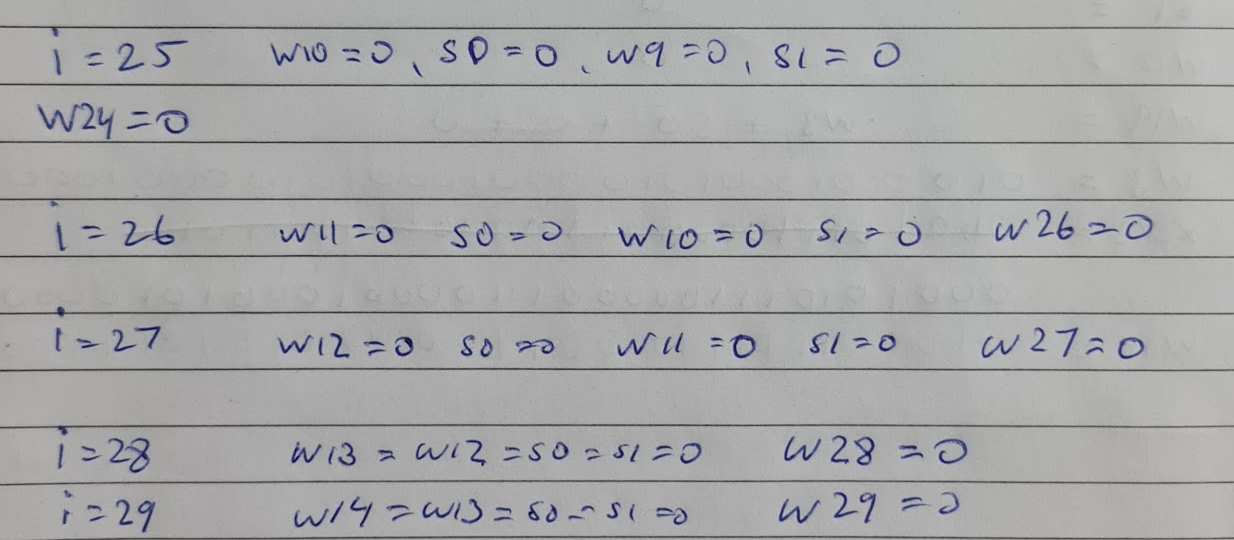 i = 25 w10 = 0, s0 = 0, w9 = 0, s1 = 0
w24 = 0
i = 26 w11 = 0 s0 = 0 w10 = 0 s1 = 0 w26 = 0
i = 27 w12 = 0 s0 = 0 w11 = 0 s1 = 0 w27 = 0
i = 28 w13 = w12 = s0 = s1 = 0 w28 = 0
i = 29 w14 = w13 = s0 = s1 = 0 w29 = 0